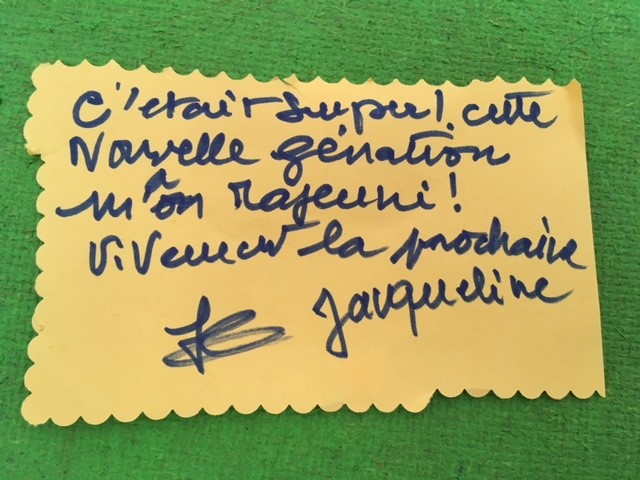 C'était super! cette
Nouvelle génération
m'a rajeuni!
Vivement la prochaine
Jacqueline